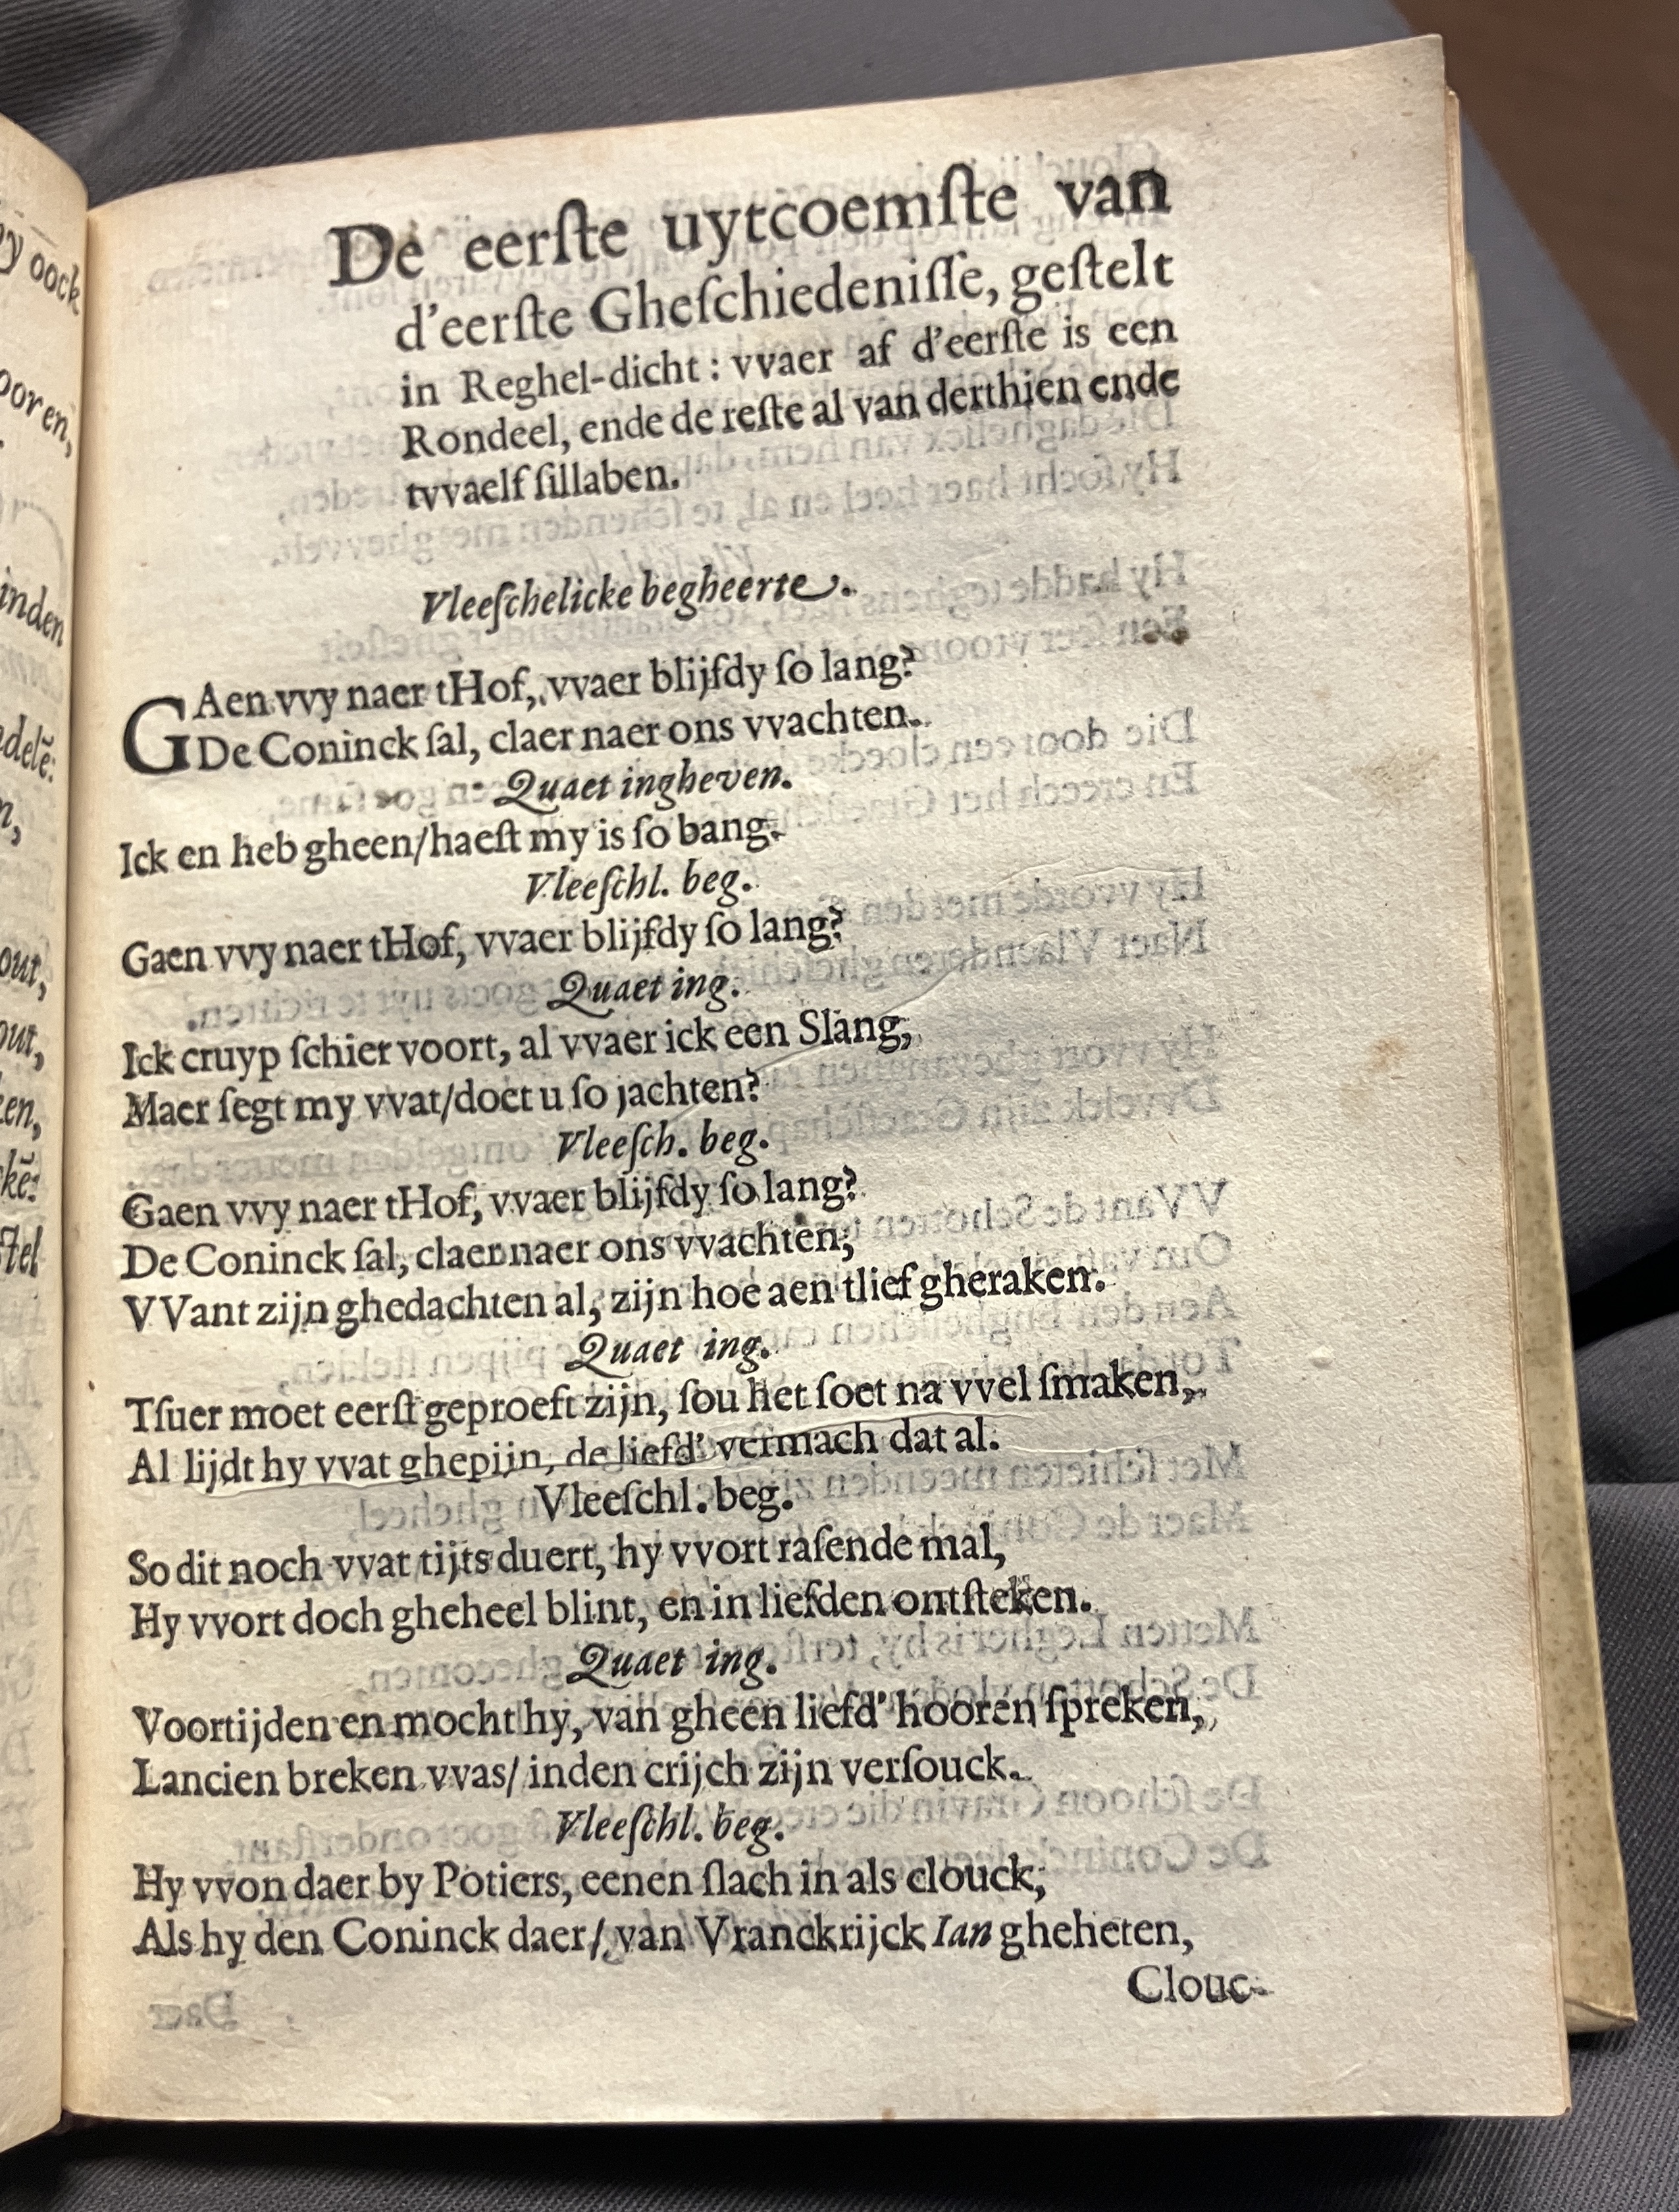 De eerſte uytcoemſte van
d'eerſte Gheſchiedeniſſe, geſtelt
in Reghel-dicht : vvaer af d'eerſte is een
Rondeel, ende de reſte al van derthien ende
tvvaelf ſillaben.
Vleeſchelicke begheerte.
GAen vvy naer tHof, vvaer blijfdy ſo lang?
De Coninck ſal, claer naer ons vvachten.
Quaet ingheven.
Ick en heb gheen/haeſt my is ſo bang.
Vleeſchl. beg.
Gaen vvy naer tHof, vvaer blijfdy ſo lang?
Quaet ing.
Ick cruyp ſchier voort, al vvaer ick een Slang,
Maer ſegt my vvat/doet u ſo jachten?
Vleeſch. beg.
Gaen vvy naer tHof, vvaer blijfdy ſo lang?
De Coninck ſal, claer naer ons vvachten,
VVant zijn ghedachten al, zijn hoe aen tlief gheraken.
Quaet ing.
Tſuer moet eerſt geproeft zijn, ſou het ſoet na vvel ſmaken,
Al lijdt hy vvat ghepijn, de liefd' vermach dat al.
Vleeſchl. beg.
So dit noch vvat tijts duert, hy vvort raſende mal,
Hy vvort doch gheheel blint, en in liefden ontſteken.
Quaet ing.
Voortijden en mocht hy, van gheen liefd' hooren ſpreken,
Lancien breken vvas/ inden crijch zijn verſouck.
Vleeſchl. beg.
Hy vvon daer by Potiers, eenen ſlach in als clouck,
Als hy den Coninck daer/ van Vranckrijck Ian gheheten,
Clouc-